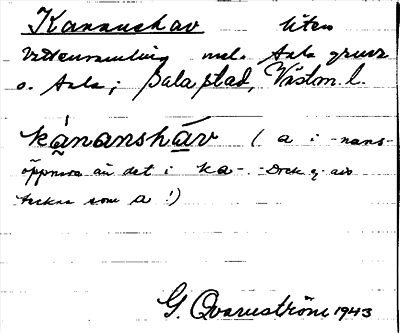 Kananshav liten
Vattensamling mel. Sala gruva
o. Sala; Sala stad, Västm. l.
kánansháv ( a i -nans-
öppnare än det i ka-. Dock ej an-
tecknas som a !)
G. Qvarnström 1943